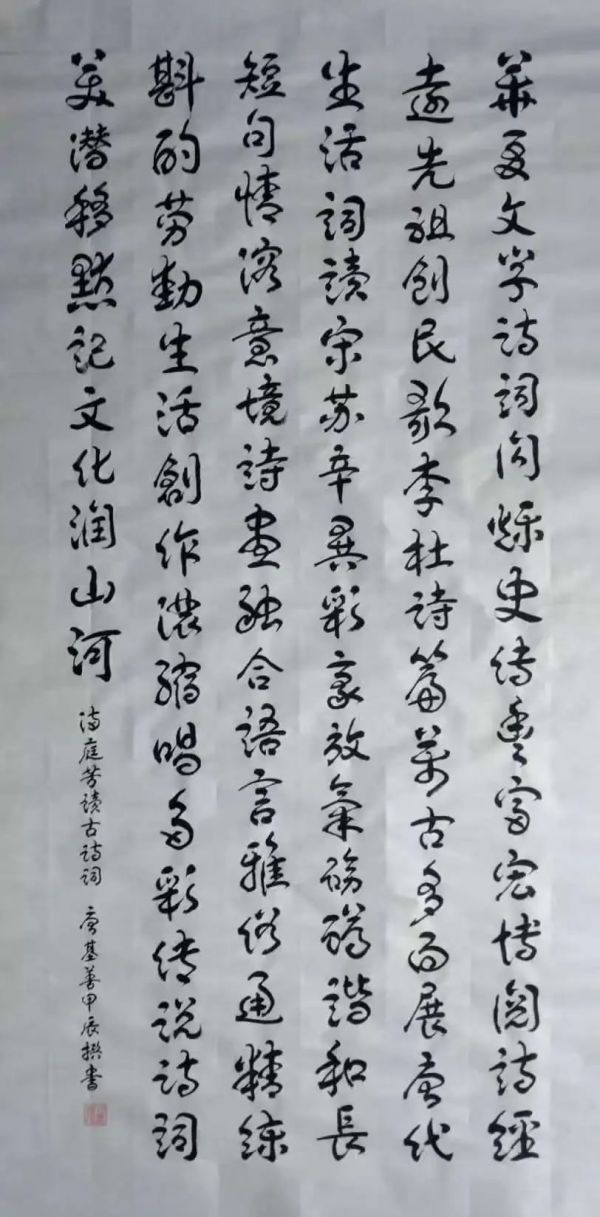 華夏文字詩詞閃爍史傳豐富宏博閱詩經
遠先祖創民歌李杜詩篇萬古多面展唐代
生活詞讀宋苏辛異彩豪放氣磅礴諧和長
短句情溶意境詩畫融合語言雅俗通精練
斟酌勞動生活創作濃縮唱多彩傳説詩詞
美潛移默記文化潤山河
满庭芳讀古詩詞 唐基善甲辰撰書